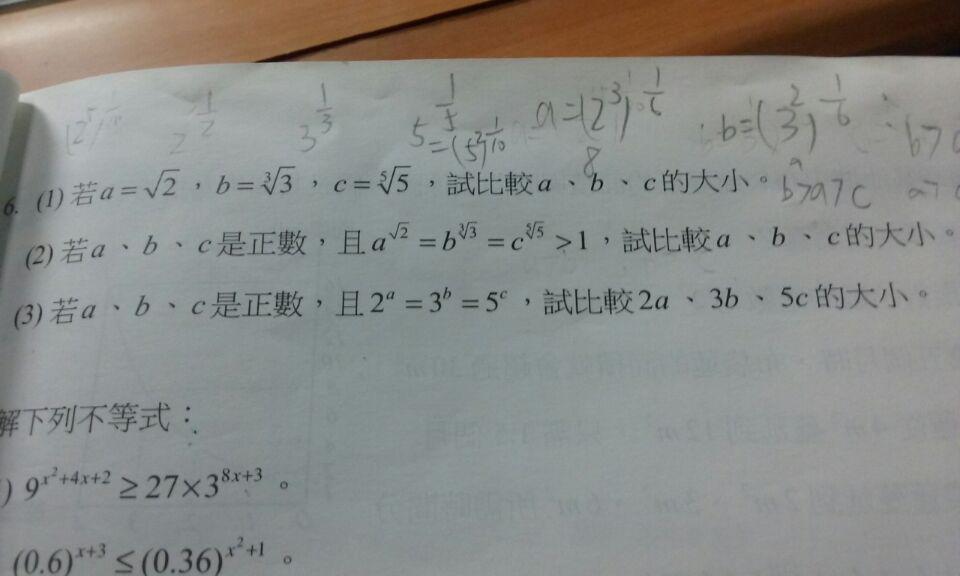 (2⁵)^(1/10) 2^(1/2) 3^(1/3) 5^(1/5) a=(2³)^(1/6)
=(5²)^(1/10) 8 b=(3²)^(1/6) ∴ b>
9 b>a>c a>
6. (1) 若a=√2，b=∛3，c=⁵√5，試比較a、b、c的大小。
(2) 若a、b、c是正數，且a^√2=b^∛3=c^⁵√5>1，試比較a、b、c的大小。
(3) 若a、b、c是正數，且2^a=3^b=5^c，試比較2a、3b、5c的大小。
解下列不等式：
) 9^(x²+4x+2)≥27×3^(8x+3)。
(0.6)^(x+3)≤(0.36)^(x²+1)。